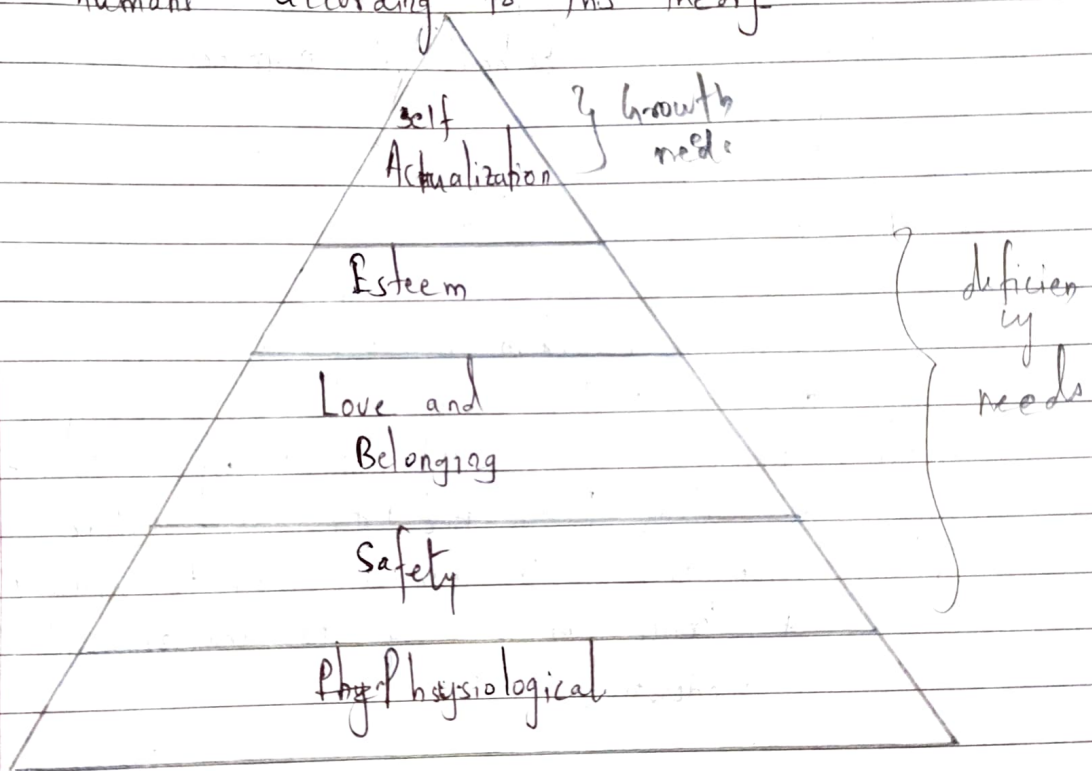 humans according to this theory
self
Actualization
} Growth
needs
Esteem
deficien
cy
needs
Love and
Belonging
Safety
Physiological